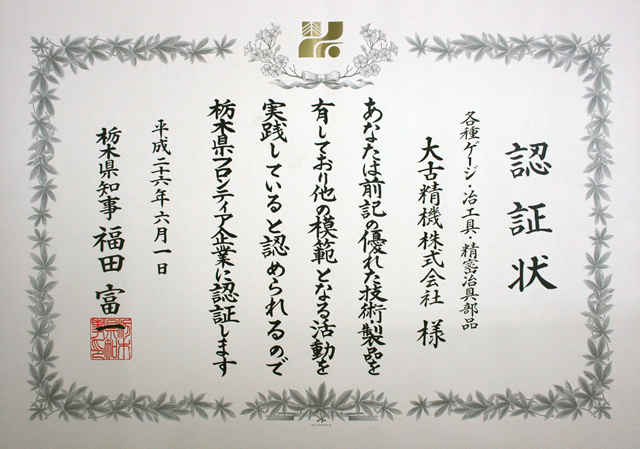 認証状
各種ゲージ・冶工具・精密治具部品
大古精機株式会社 様
あなたは前記の優れた技術製品を
有しており他の模範となる活動を
実践していると認められるので
栃木県フロンティア企業に認証します
平成二十六年六月一日
栃木県知事 福田富一